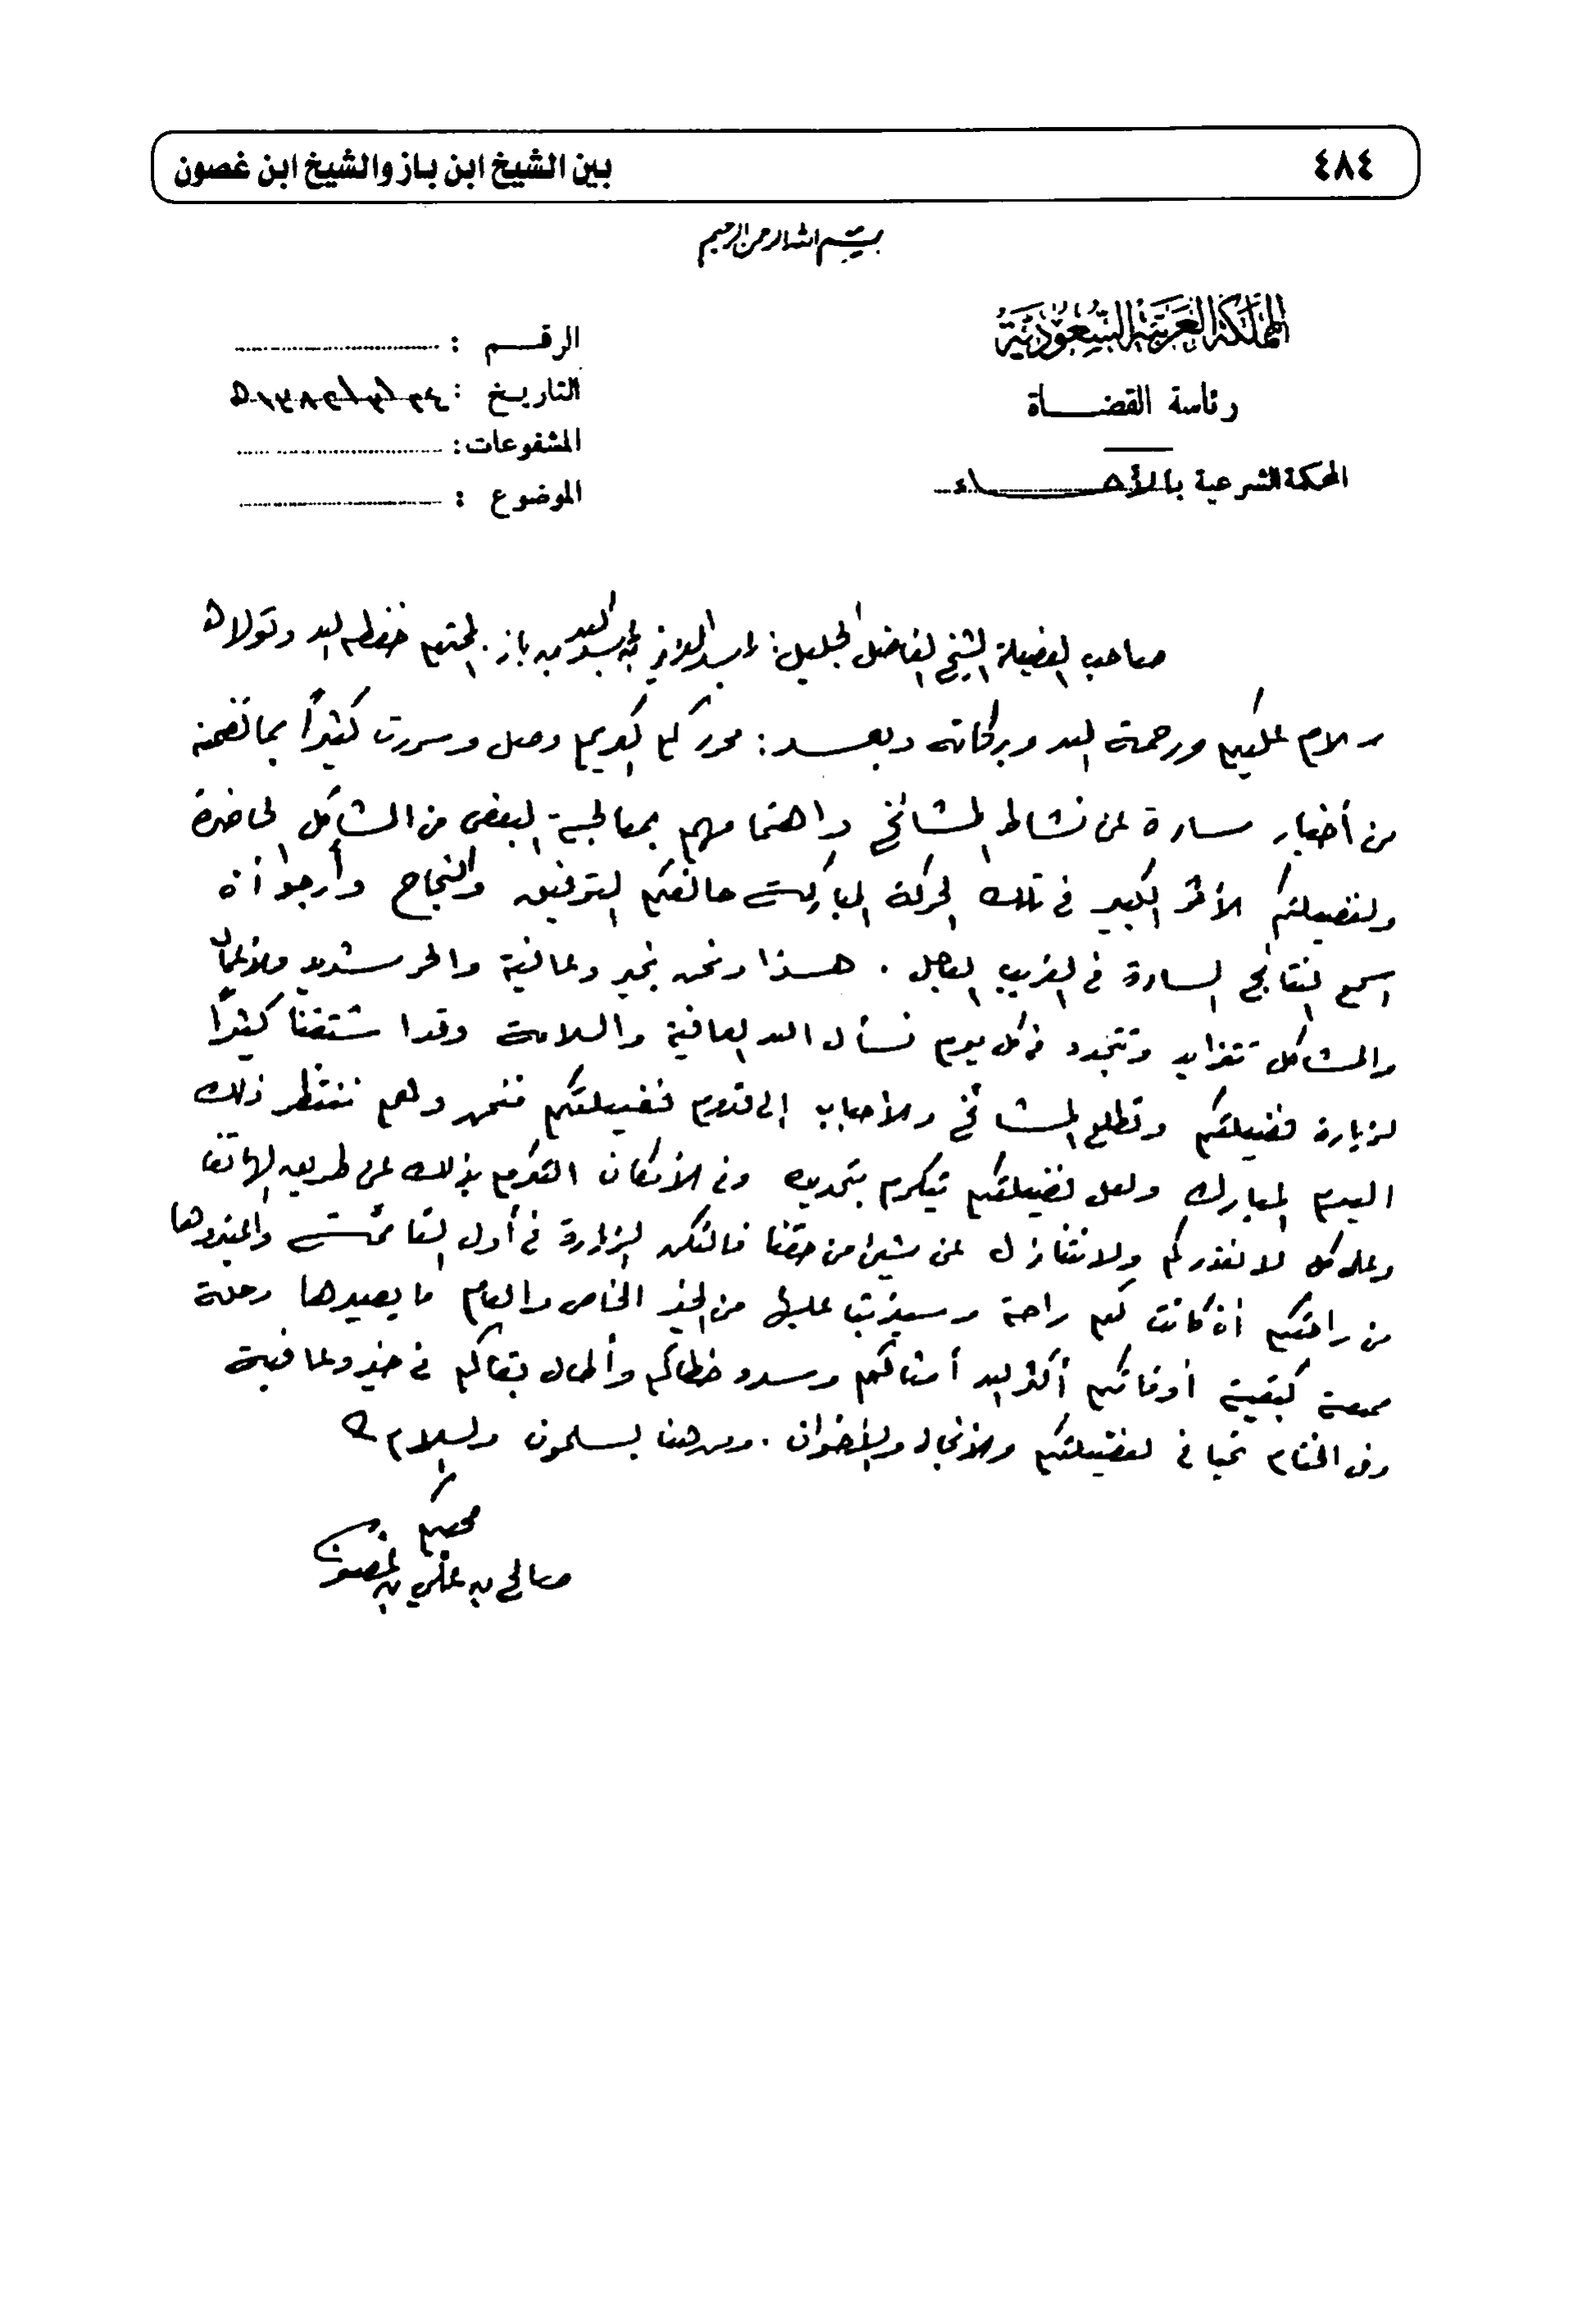 ٤٨٤
بين الشيخ ابن باز والشيخ ابن غصون
بسم الله الرحمن الرحيم
المملكة العربية السعودية
رئاسة القضاة
المحكمة الشرعية بالأحساء
الرقم :
التاريخ :
المشفوعات :
الموضوع :
صاحب الفضيلة الشيخ الفاضل الجليل : عبد العزيز بن عبد الله بن باز . المحترم حفظه الله وتولاه
سلام عليكم ورحمة الله وبركاته وبعد : محرركم الكريم وصل وسررت كثيرًا بما تضمنه
من أخبار سارة عن نشاط المشائخ واهتمامهم بمعالجة البعض من المشاكل الحاضرة
ولفضيلتكم الأثر الكبير في تلك الحركة المباركة حالفكم التوفيق والنجاح وأرجو أن
اسمع النتائج السارة في القريب العاجل . هذا ونحن بخير وعافية والحر شديد والأعمال
والمشاكل تتزايد وتتجدد في كل يوم نسأل الله العافية والسلامة وقد اشتقنا كثيرًا
لزيارة فضيلتكم وتطلع المشائخ والأحباب إلى قدوم فضيلتكم فنحن وهم ننتظر ذلك
اليوم المبارك ولعل فضيلتكم يتكرم بتحديده وفي الأمكان التكرم بذلك عن طريق الهاتف
وعلى كل لا نعذركم ولا نتنازل عن شيئ من حقنا فلتكن الزيارة في أول القائمة واعتبروها
من راحتكم أن كانت لكم راحة وسيترتب عليها من الخير الخاص والعام ما يصيرها رحلة
ممتعة كبقية أوقاتكم أكثر الله أمثالكم وسدد خطاكم وأطال بقاكم في خير وعافية
وفي الختام تحياتي لفضيلتكم والأنجال والأخوان . ومن هنا يسلمون والسلام
محبكم
صالح بن علي بن غصون